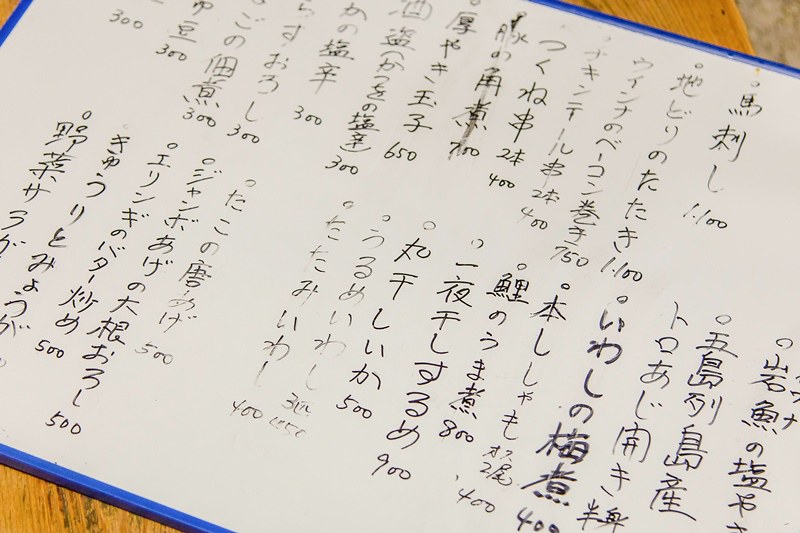 馬刺し 1.100
地どりのたたき 1.100
ウインナのベーコン巻き 750
チキンテール串 2本 400
つくね串 2本 400
豚の角煮 700
厚やき玉子 650
酒盗(かつをの塩辛) 300
かの塩辛
らすおろし 300
ごの佃煮 300
豆 300
300
岩魚の塩やき
五島列島産
トロあじ開き
いわしの梅煮 400
本ししゃも オス2尾 400
鯉のうま煮 800
一夜干しするめ 900
丸干しいか 500
うるめいわし
たたみいわし 400
たこの唐あげ
ジャンボあげの大根おろし 500
エリンギのバター炒め 500
きゅうりとみょうが
野菜サラダ